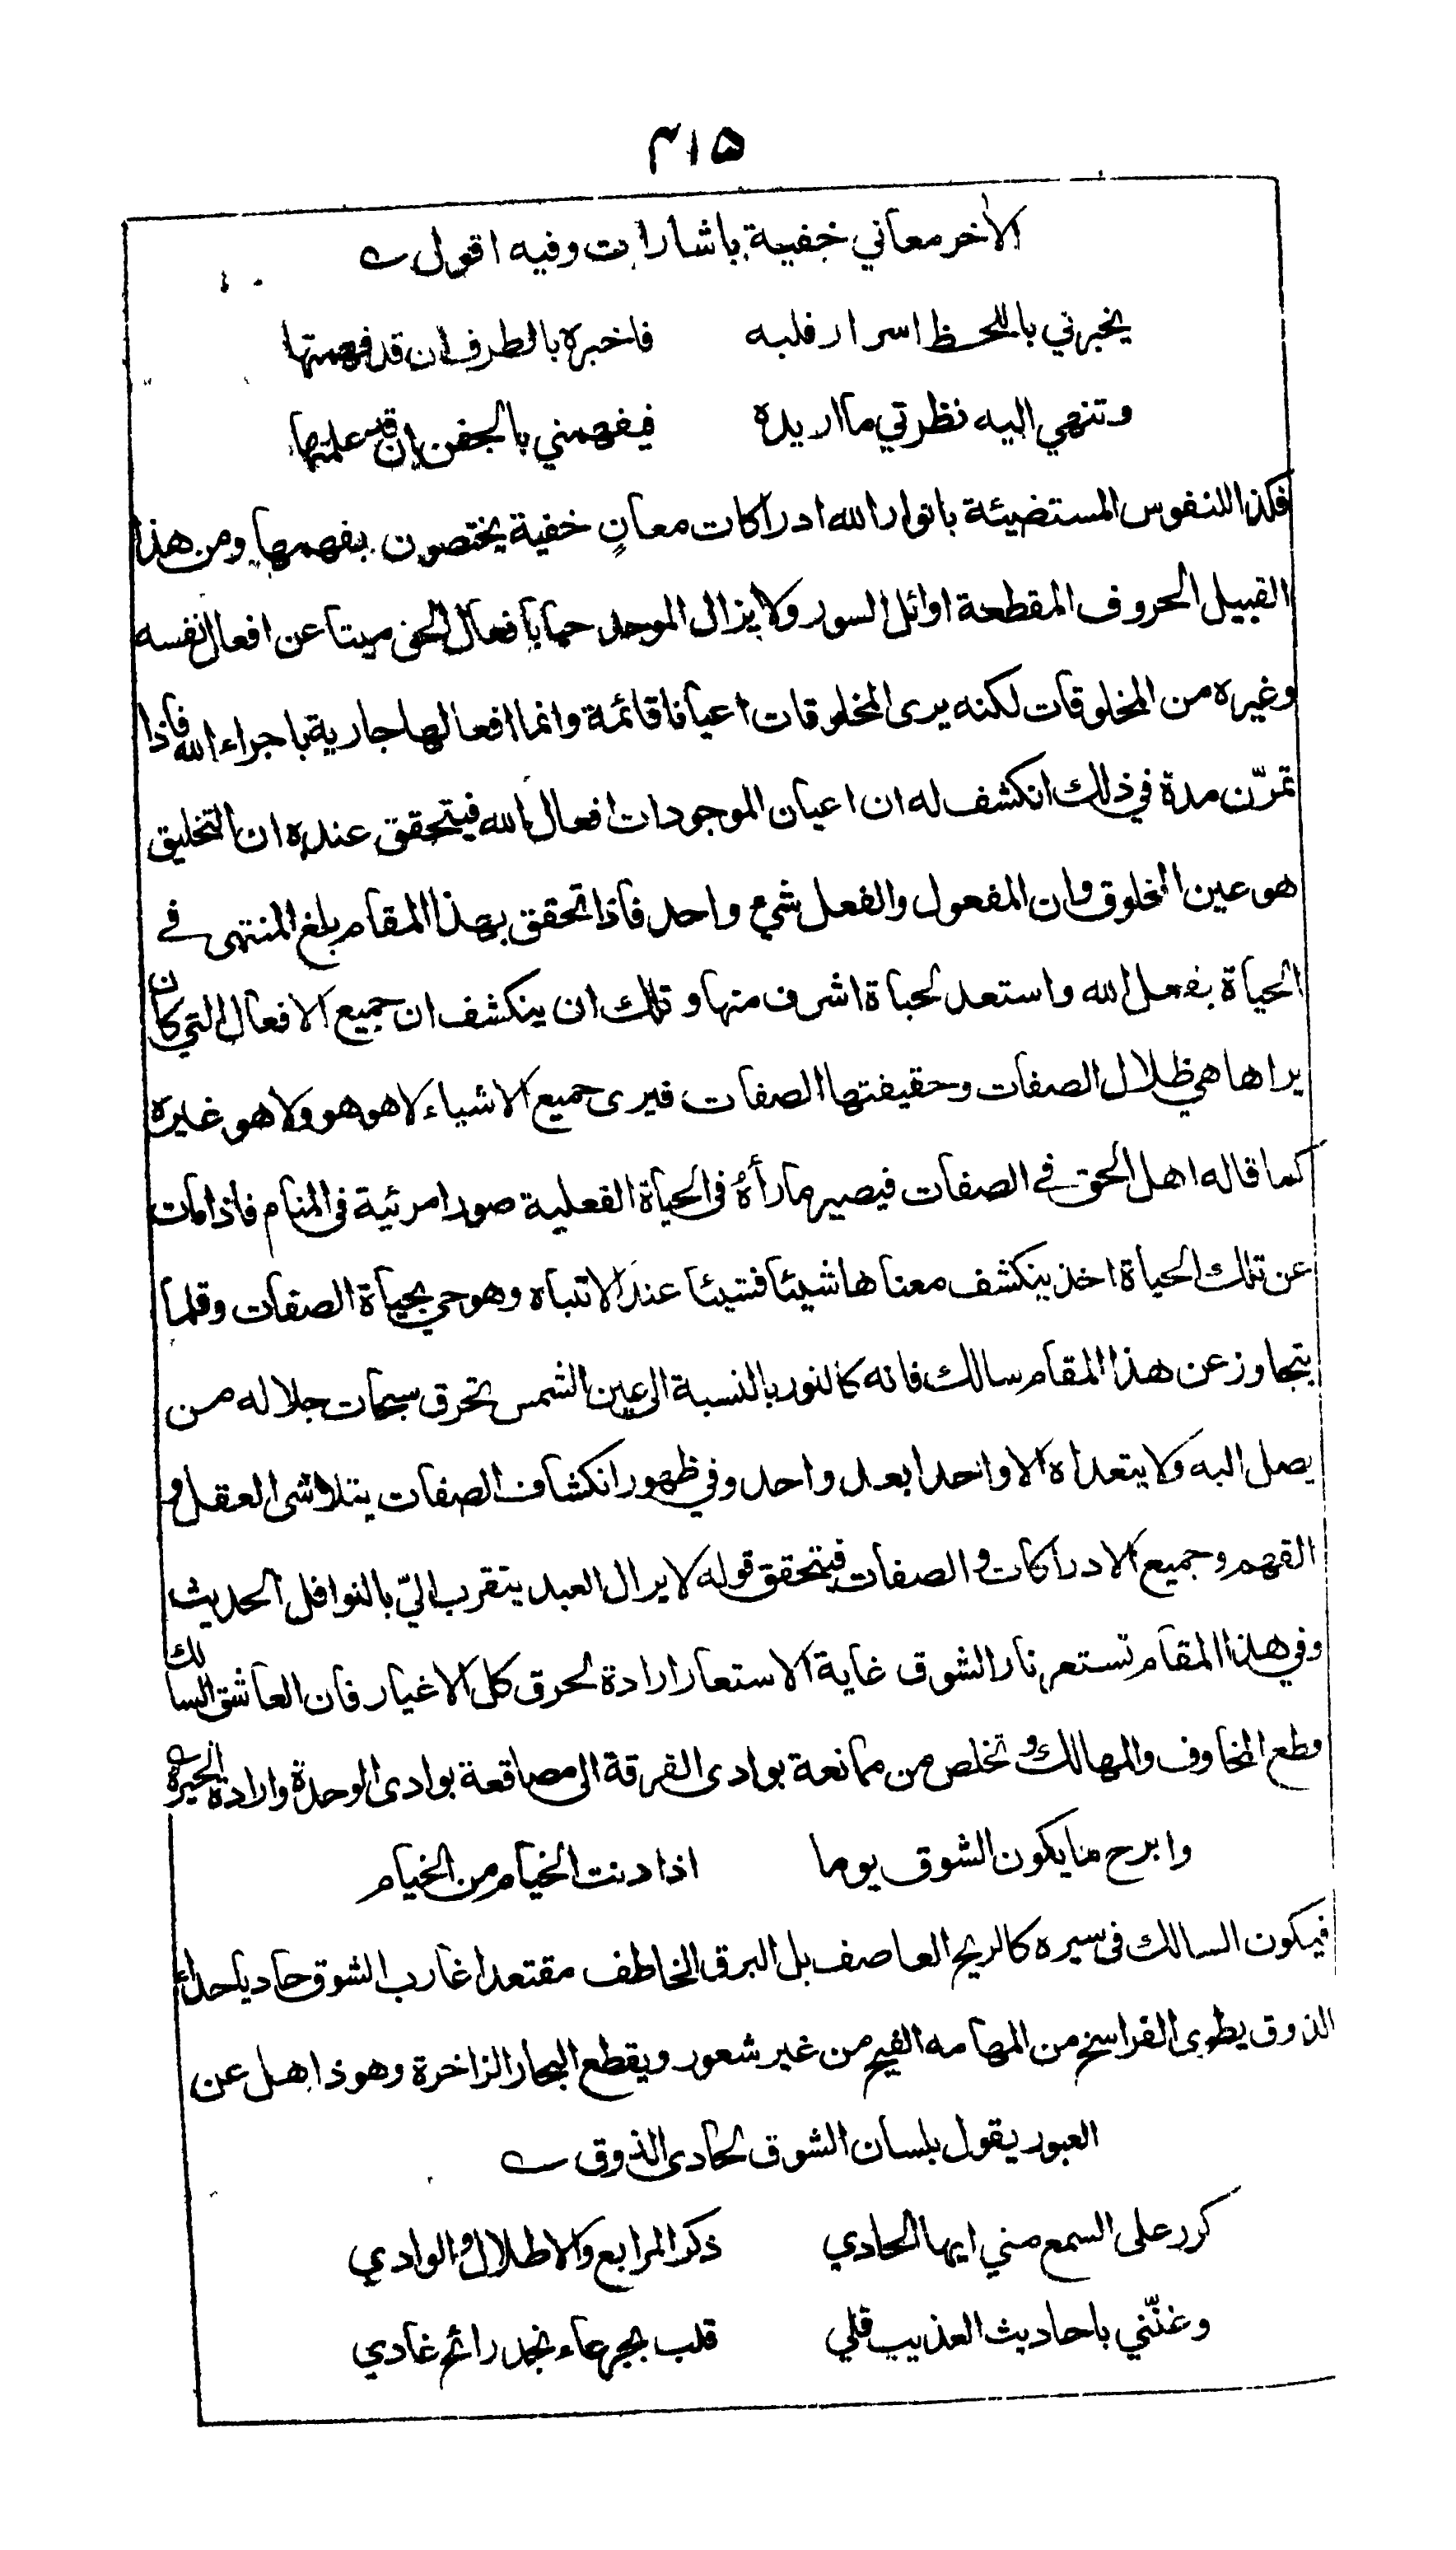 ٣١٥
الاخر معاني خفية باشارات وفيه اقول
يخبرني باللحظ اسرار قلبه فاخبره بالطرف ان قد فهمتها
وتنهي اليه نظرتي ما اريده فيفهمني بالجفن ان قد علمتها
فكذا النفوس المستضيئة بانوار الله ادراكات معانٍ خفية يختصون بفهمها ومن هذا
القبيل الحروف المقطعة اوائل السور ولا يزال الموحد حيا بافعال الحق ميتا عن افعال نفسه
وغيره من المخلوقات لكنه يرى المخلوقات اعيانا قائمة وانما افعالها جارية باجراء الله فاذا
تمرّن مدة في ذلك انكشف له ان اعيان الموجودات افعال الله فيتحقق عنده ان التخليق
هو عين المخلوق وان المفعول والفعل شيء واحد فاذا تحقق بهذا المقام بلغ المنتهى في
الحياة بفعل الله واستعد لحياة اشرف منها وتلك ان ينكشف ان جميع الافعال التي كان
يراها هي ظلال الصفات وحقيقتها الصفات فيرى جميع الاشياء لا هو هو ولا هو غيره
كما قاله اهل الحق في الصفات فيصير ما رأهُ في الحياة الفعلية صورا مرئية في المنام فاذا مات
عن تلك الحياة اخذ ينكشف معناها شيئا فشيئا عند الانتباه وهو حي بحياة الصفات وقلما
يتجاوز عن هذا المقام سالك فانه كالنور بالنسبة الى عين الشمس تحرق سبحات جلاله من
يصل اليه ولا يتعداه الا واحدا بعد واحد وفي ظهور انكشاف الصفات يتلاشى العقل و
الفهم وجميع الادراكات والصفات فيتحقق قوله لا يزال العبد يتقرب اليّ بالنوافل الحديث
وفي هذا المقام تستعر نار الشوق غاية الاستعار ارادة لحرق كل الاغيار فان العاشق السالك
قطع المخاوف والمهالك وتخلص من ممانعة بوادى الفرقة الى مصاقعة بوادى الوحدة وارادة الحيرة
وابرح ما يكون الشوق يوما اذا دنت الخيام من الخيام
فيكون السالك في سيره كالريح العاصف بل البرق الخاطف مقتعدا غارب الشوق حاديا حداء
الذوق يطوى الفراسخ من المهامه الفيح من غير شعور ويقطع البحار الزاخرة وهو ذاهل عن
العبور يقول بلسان الشوق لحادى الذوق
كرر على السمع مني ايها الحادي ذكر المرابع والاطلال والوادي
وغنّني باحاديث العذيب فلي قلب بجرعاء نجد رائح غادي